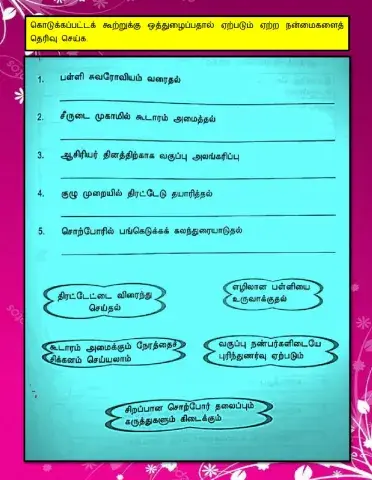 கொடுக்கப்பட்டக் கூற்றுக்கு ஒத்துழைப்பதால் ஏற்படும் ஏற்ற நன்மைகளைத்
தெரிவு செய்க.
1. பள்ளி சுவரோவியம் வரைதல்
2. சீருடை முகாமில் கூடாரம் அமைத்தல்
3. ஆசிரியர் தினத்திற்காக வகுப்பு அலங்கரிப்பு
4. குழு முறையில் திரட்டேடு தயாரித்தல்
5. சொற்போரில் பங்கெடுக்கக் கலந்துரையாடுதல்
திரட்டேட்டை விரைந்து
செய்தல்
எழிலான பள்ளியை
உருவாக்குதல்
கூடாரம் அமைக்கும் நேரத்தைச்
சிக்கனம் செய்யலாம்
வகுப்பு நண்பர்களிடையே
புரிந்துணர்வு ஏற்படும்
சிறப்பான சொற்போர் தலைப்பும்
கருத்துகளும் கிடைக்கும்